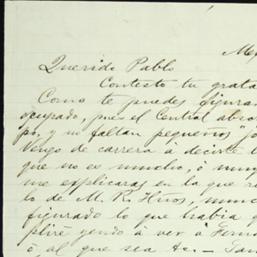 Mé
Querido Pablo
Contesto tu grata
Como te puedes figurar
ocupado, pues el Central abso
po, y ni faltan pequeños
Vengo de carrera á decirte l
que no es mucho, ó
me explicaras en la que
lo de M. R. Hnos,
figurado lo que habia
yendo á ver á
ó, al que sea &c — Tam